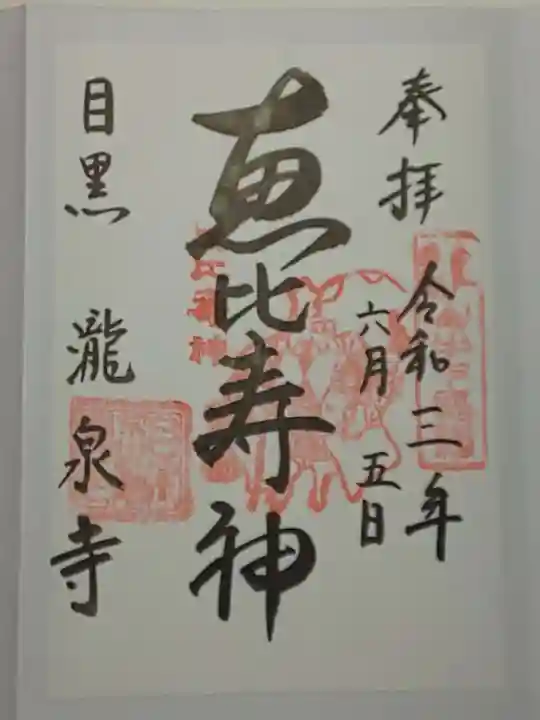 奉拝
令和三年
六月五日
恵比寿神
目黒 瀧泉寺